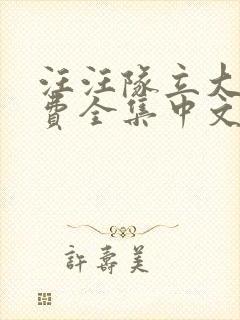 汪汪隊立大
費全集中文
許壽美